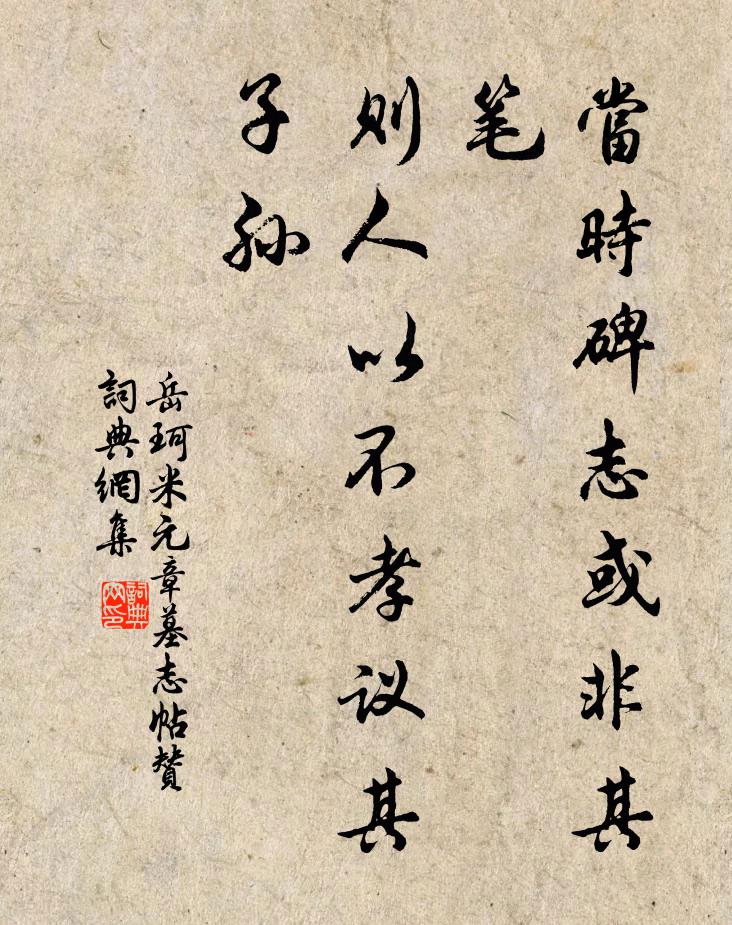 當時碑志或非其
笔
則人以不孝议其
子孙
岳珂米元章墓志帖贊
詞典網集
詞典
网印